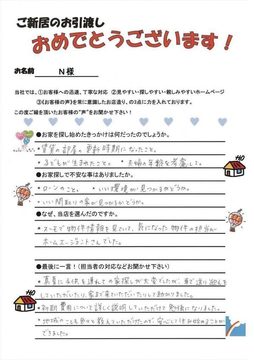 ご新居のお引渡し
おめでとうございます！
お名前 N様
当社では、①お客様への迅速、丁寧な対応 ②見やすい・探しやすい・親しみやすいホームページ
③《お客様の声》を常に意識したお店造り、の3点に力を入れております。
この度ご縁を頂いたお客様の"声"をお聞かせ下さい！
●お家を探し始めたきっかけは何だったのでしょうか。
・賃貸の部屋の更新時期になったこと。
・子どもが生まれたこと。 ・夫婦の年齢を考慮して。
●お家探しで不安な事はありましたか。
・ローンのこと。 ・いい環境が見つかるかどうか。
・いい間取りの家が見つかるかどうか。
●なぜ、当店を選んだのですか。
・ネットで物件情報を見ていて、気になった物件の担当が
ホームエーランドさんでした。
●最後に一言！（担当者の対応などお聞かせ下さい）
・真夏に子供を連れての家探しが大変でしたが、車で送り迎えを
していただいたり、家まで来ていただいたりして助かりました。
・初期費用について詳しく説明していただけて参考になりました。
・地域のことも色々と教えていただけたので、安心して決めることが
できました。